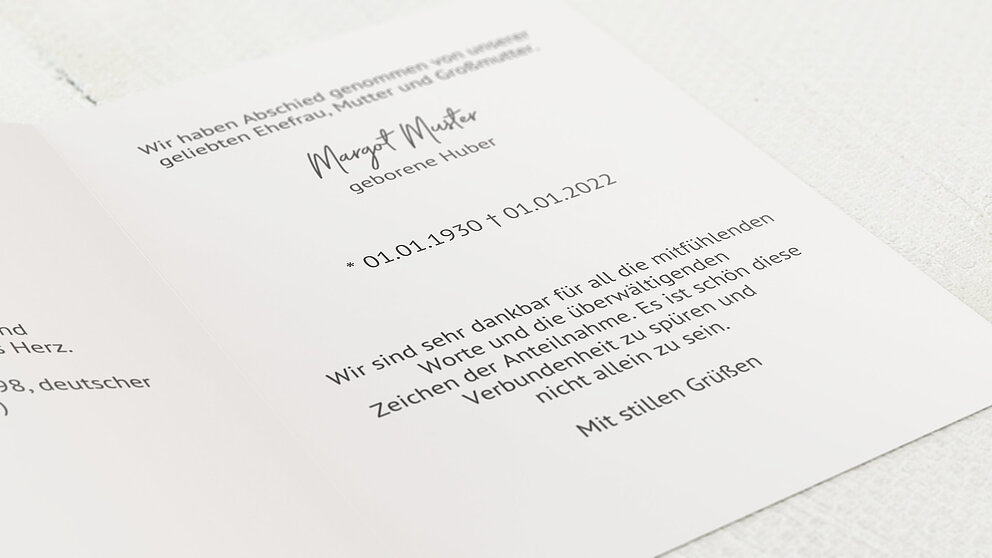 nd
s Herz.
98, deutscher
)
Wir haben Abschied genommen von unserer
geliebten Ehefrau, Mutter und Großmutter.
Margot Muster
geborene Huber
* 01.01.1930 † 01.01.2022
Wir sind sehr dankbar für all die mitfühlenden
Worte und die überwältigenden
Zeichen der Anteilnahme. Es ist schön diese
Verbundenheit zu spüren und
nicht allein zu sein.
Mit stillen Grüßen